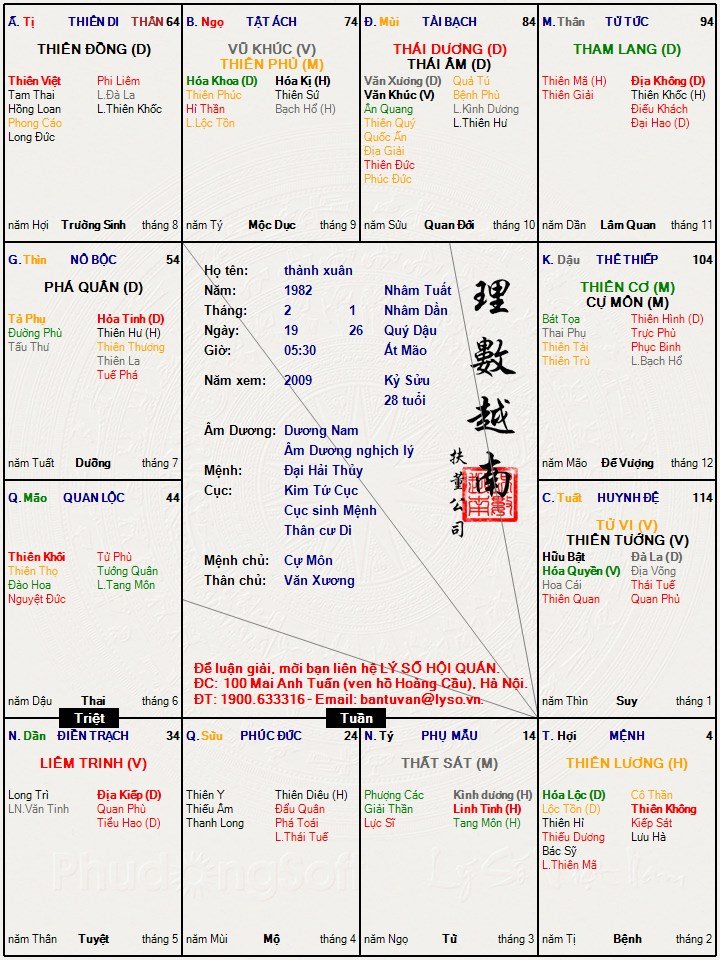 Ấ. Tị THIÊN DI THÂN 64
THIÊN ĐỒNG (D)
Thiên Việt Phi Liêm
Tam Thai L.Đà La
Hồng Loan L.Thiên Khốc
Phong Cáo
Long Đức
năm Hợi Trường Sinh tháng 8
B. Ngọ TẬT ÁCH 74
VŨ KHÚC (V)
THIÊN PHỦ (M)
Hóa Khoa (D) Hóa Kị (H)
Thiên Phúc Thiên Sứ
Hỉ Thần Bạch Hổ (H)
L.Lộc Tồn
năm Tý Mộc Dục tháng 9
Đ. Mùi TÀI BẠCH 84
THÁI DƯƠNG (D)
THÁI ÂM (D)
Văn Xương (D) Quả Tú
Văn Khúc (V) Bệnh Phù
Ân Quang L.Kình Dương
Thiên Quý L.Thiên Hư
Quốc Ấn
Địa Giải
Thiên Đức
Phúc Đức
năm Sửu Quan Đới tháng 10
M. Thân TỬ TỨC 94
THAM LANG (D)
Thiên Mã (H) Địa Không (D)
Thiên Giải Thiên Khốc (H)
Điếu Khách
Đại Hao (D)
năm Dần Lâm Quan tháng 11
G. Thìn NÔ BỘC 54
PHÁ QUÂN (D)
Tả Phụ Hỏa Tinh (D)
Đường Phù Thiên Hư (H)
Tấu Thư Thiên Thương
Thiên La
Tuế Phá
năm Tuất Dưỡng tháng 7
Họ tên: thành xuân
Năm: 1982 Nhâm Tuất
Tháng: 2 1 Nhâm Dần
Ngày: 19 26 Quý Dậu
Giờ: 05:30 Ất Mão
Năm xem: 2009 Kỷ Sửu
28 tuổi
Âm Dương: Dương Nam
Âm Dương nghịch lý
Mệnh: Đại Hải Thủy
Cục: Kim Tứ Cục
Cục sinh Mệnh
Thân cư Di
Mệnh chủ: Cự Môn
Thân chủ: Văn Xương
理數越南
扶董公司
Để luận giải, mời bạn liên hệ LÝ SỐ HỘI QUÁN.
ĐC: 100 Mai Anh Tuấn (ven hồ Hoàng Cầu), Hà Nội.
ĐT: 1900.633316 - Email: bantuvan@lyso.vn.
K. Dậu THÊ THIẾP 104
THIÊN CƠ (M)
CỰ MÔN (M)
Bát Tọa Thiên Hình (D)
Thai Phụ Trực Phù
Thiên Tài Phục Binh
Thiên Trù L.Bạch Hổ
năm Mão Đế Vượng tháng 12
Q. Mão QUAN LỘC 44
Thiên Khôi Tử Phù
Thiên Thọ Tướng Quân
Đào Hoa L.Tang Môn
Nguyệt Đức
năm Dậu Thai tháng 6
C. Tuất HUYNH ĐỆ 114
TỬ VI (V)
THIÊN TƯỚNG (V)
Hữu Bật Đà La (D)
Hóa Quyền (V) Địa Võng
Hoa Cái Thái Tuế
Thiên Quan Quan Phủ
năm Thìn Suy tháng 1
Triệt
Tuần
N. Dần ĐIỀN TRẠCH 34
LIÊM TRINH (V)
Long Trì Địa Kiếp (D)
LN.Văn Tinh Quan Phù
Tiểu Hao (D)
năm Thân Tuyệt tháng 5
Q. Sửu PHÚC ĐỨC 24
Thiên Y Thiên Diêu (H)
Thiếu Âm Đẩu Quân
Thanh Long Phá Toái
L.Thái Tuế
năm Mùi Mộ tháng 4
N. Tý PHỤ MẪU 14
THẤT SÁT (M)
Phượng Các Kình dương (H)
Giải Thần Linh Tinh (H)
Lực Sĩ Tang Môn (H)
năm Ngọ Tử tháng 3
T. Hợi MỆNH 4
THIÊN LƯƠNG (H)
Hóa Lộc (D) Cô Thần
Lộc Tồn (D) Thiên Không
Thiên Hỉ Kiếp Sát
Thiếu Dương Lưu Hà
Bác Sỹ
L.Thiên Mã
năm Tị Bệnh tháng 2